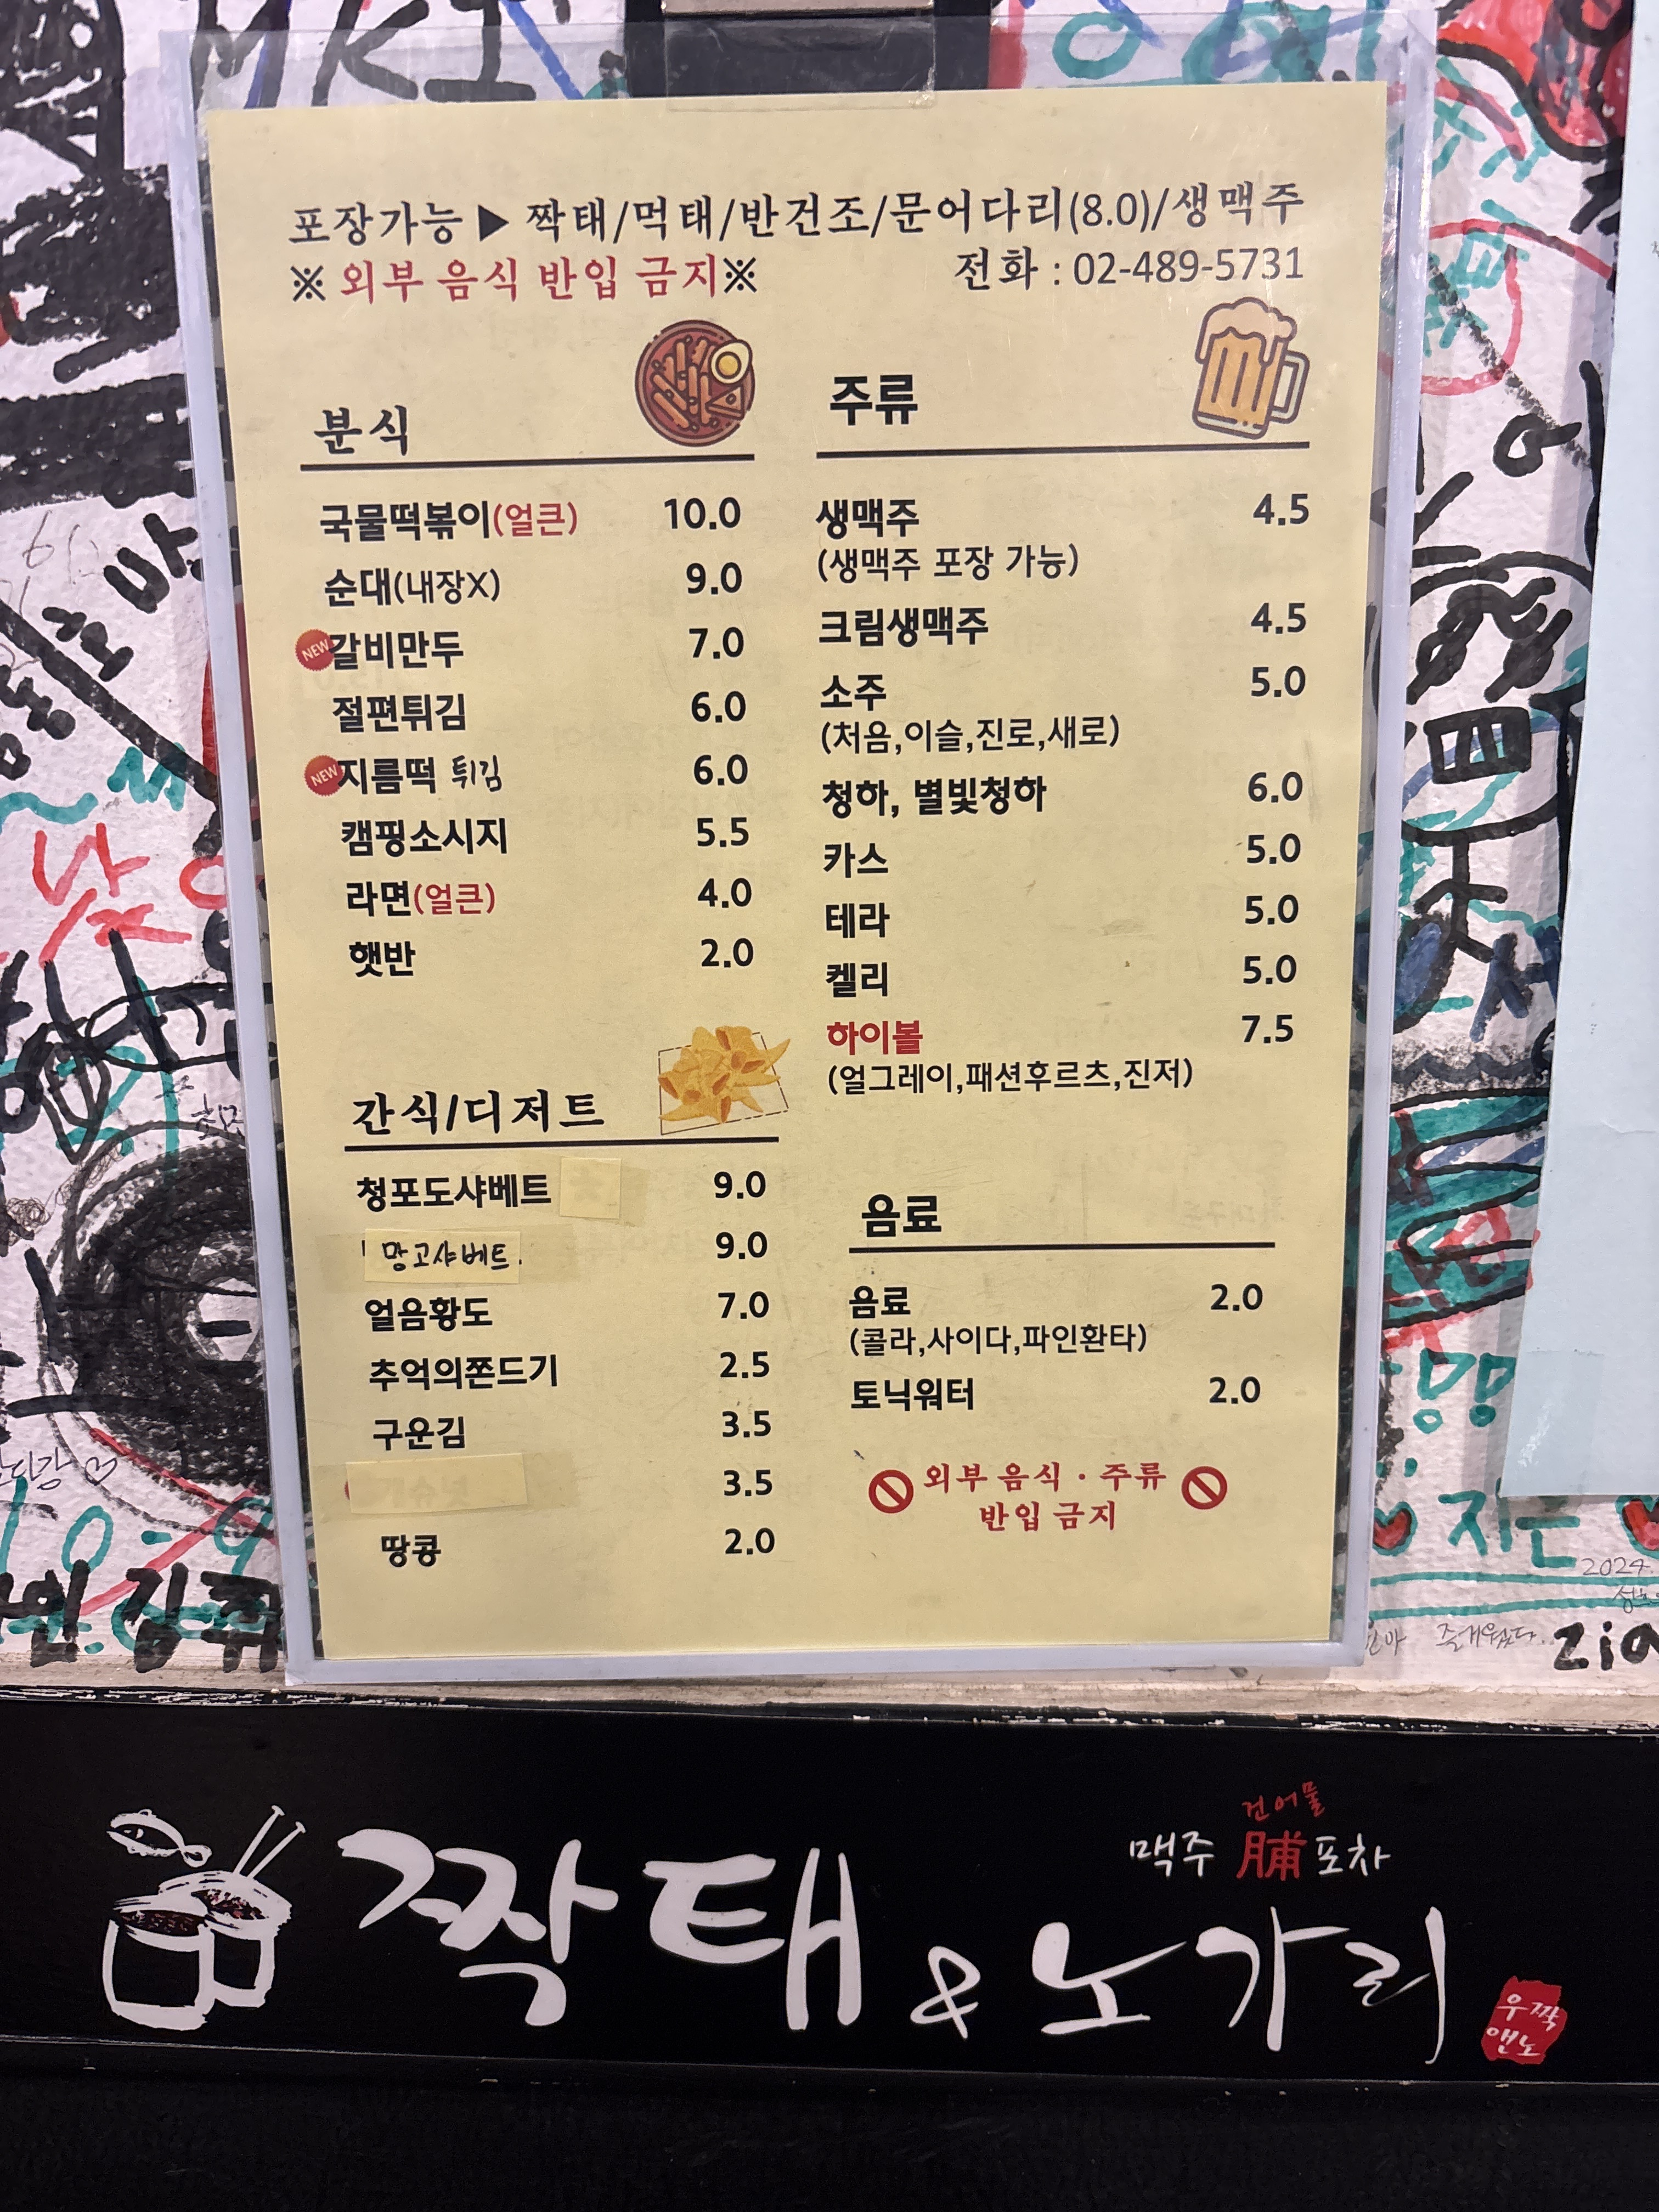 MKI
포장가능 ▶ 짝태/먹태/반건조/문어다리(8.0)/생맥주
※ 외부 음식 반입 금지※
전화 : 02-489-5731
분식
국물떡볶이(얼큰) 10.0
순대(내장X) 9.0
NEW 갈비만두 7.0
절편튀김 6.0
NEW 지름떡 튀김 6.0
캠핑소시지 5.5
라면(얼큰) 4.0
햇반 2.0
간식/디저트
청포도샤베트 9.0
망고샤베트. 9.0
얼음황도 7.0
추억의쫀드기 2.5
구운김 3.5
3.5
땅콩 2.0
주류
생맥주 4.5
(생맥주 포장 가능)
크림생맥주 4.5
소주 5.0
(처음,이슬,진로,새로)
청하, 별빛청하 6.0
카스 5.0
테라 5.0
켈리 5.0
하이볼 7.5
(얼그레이,패션후르츠,진저)
음료
음료 2.0
(콜라,사이다,파인환타)
토닉워터 2.0
외부 음식 · 주류
반입 금지
2024.
즐거웠다..
zia
건어물
맥주 脯 포차
짝태 & 노가리
우짝
앤노